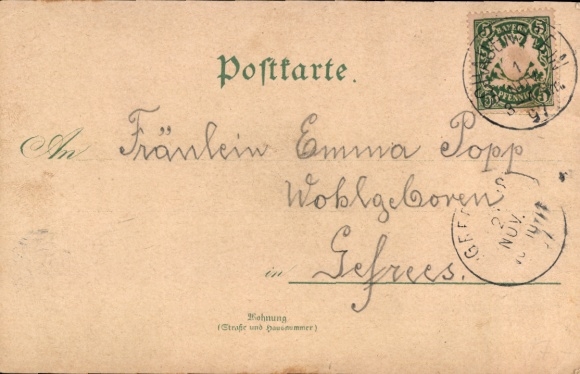 Postkarte.
5 BAYERN 5
5 PFENNIG 5
An Fräulein Emma Popp
Wohlgeboren
in Gefrees.
2
NOV.
Wohnung
(Straße und Hausnummer)